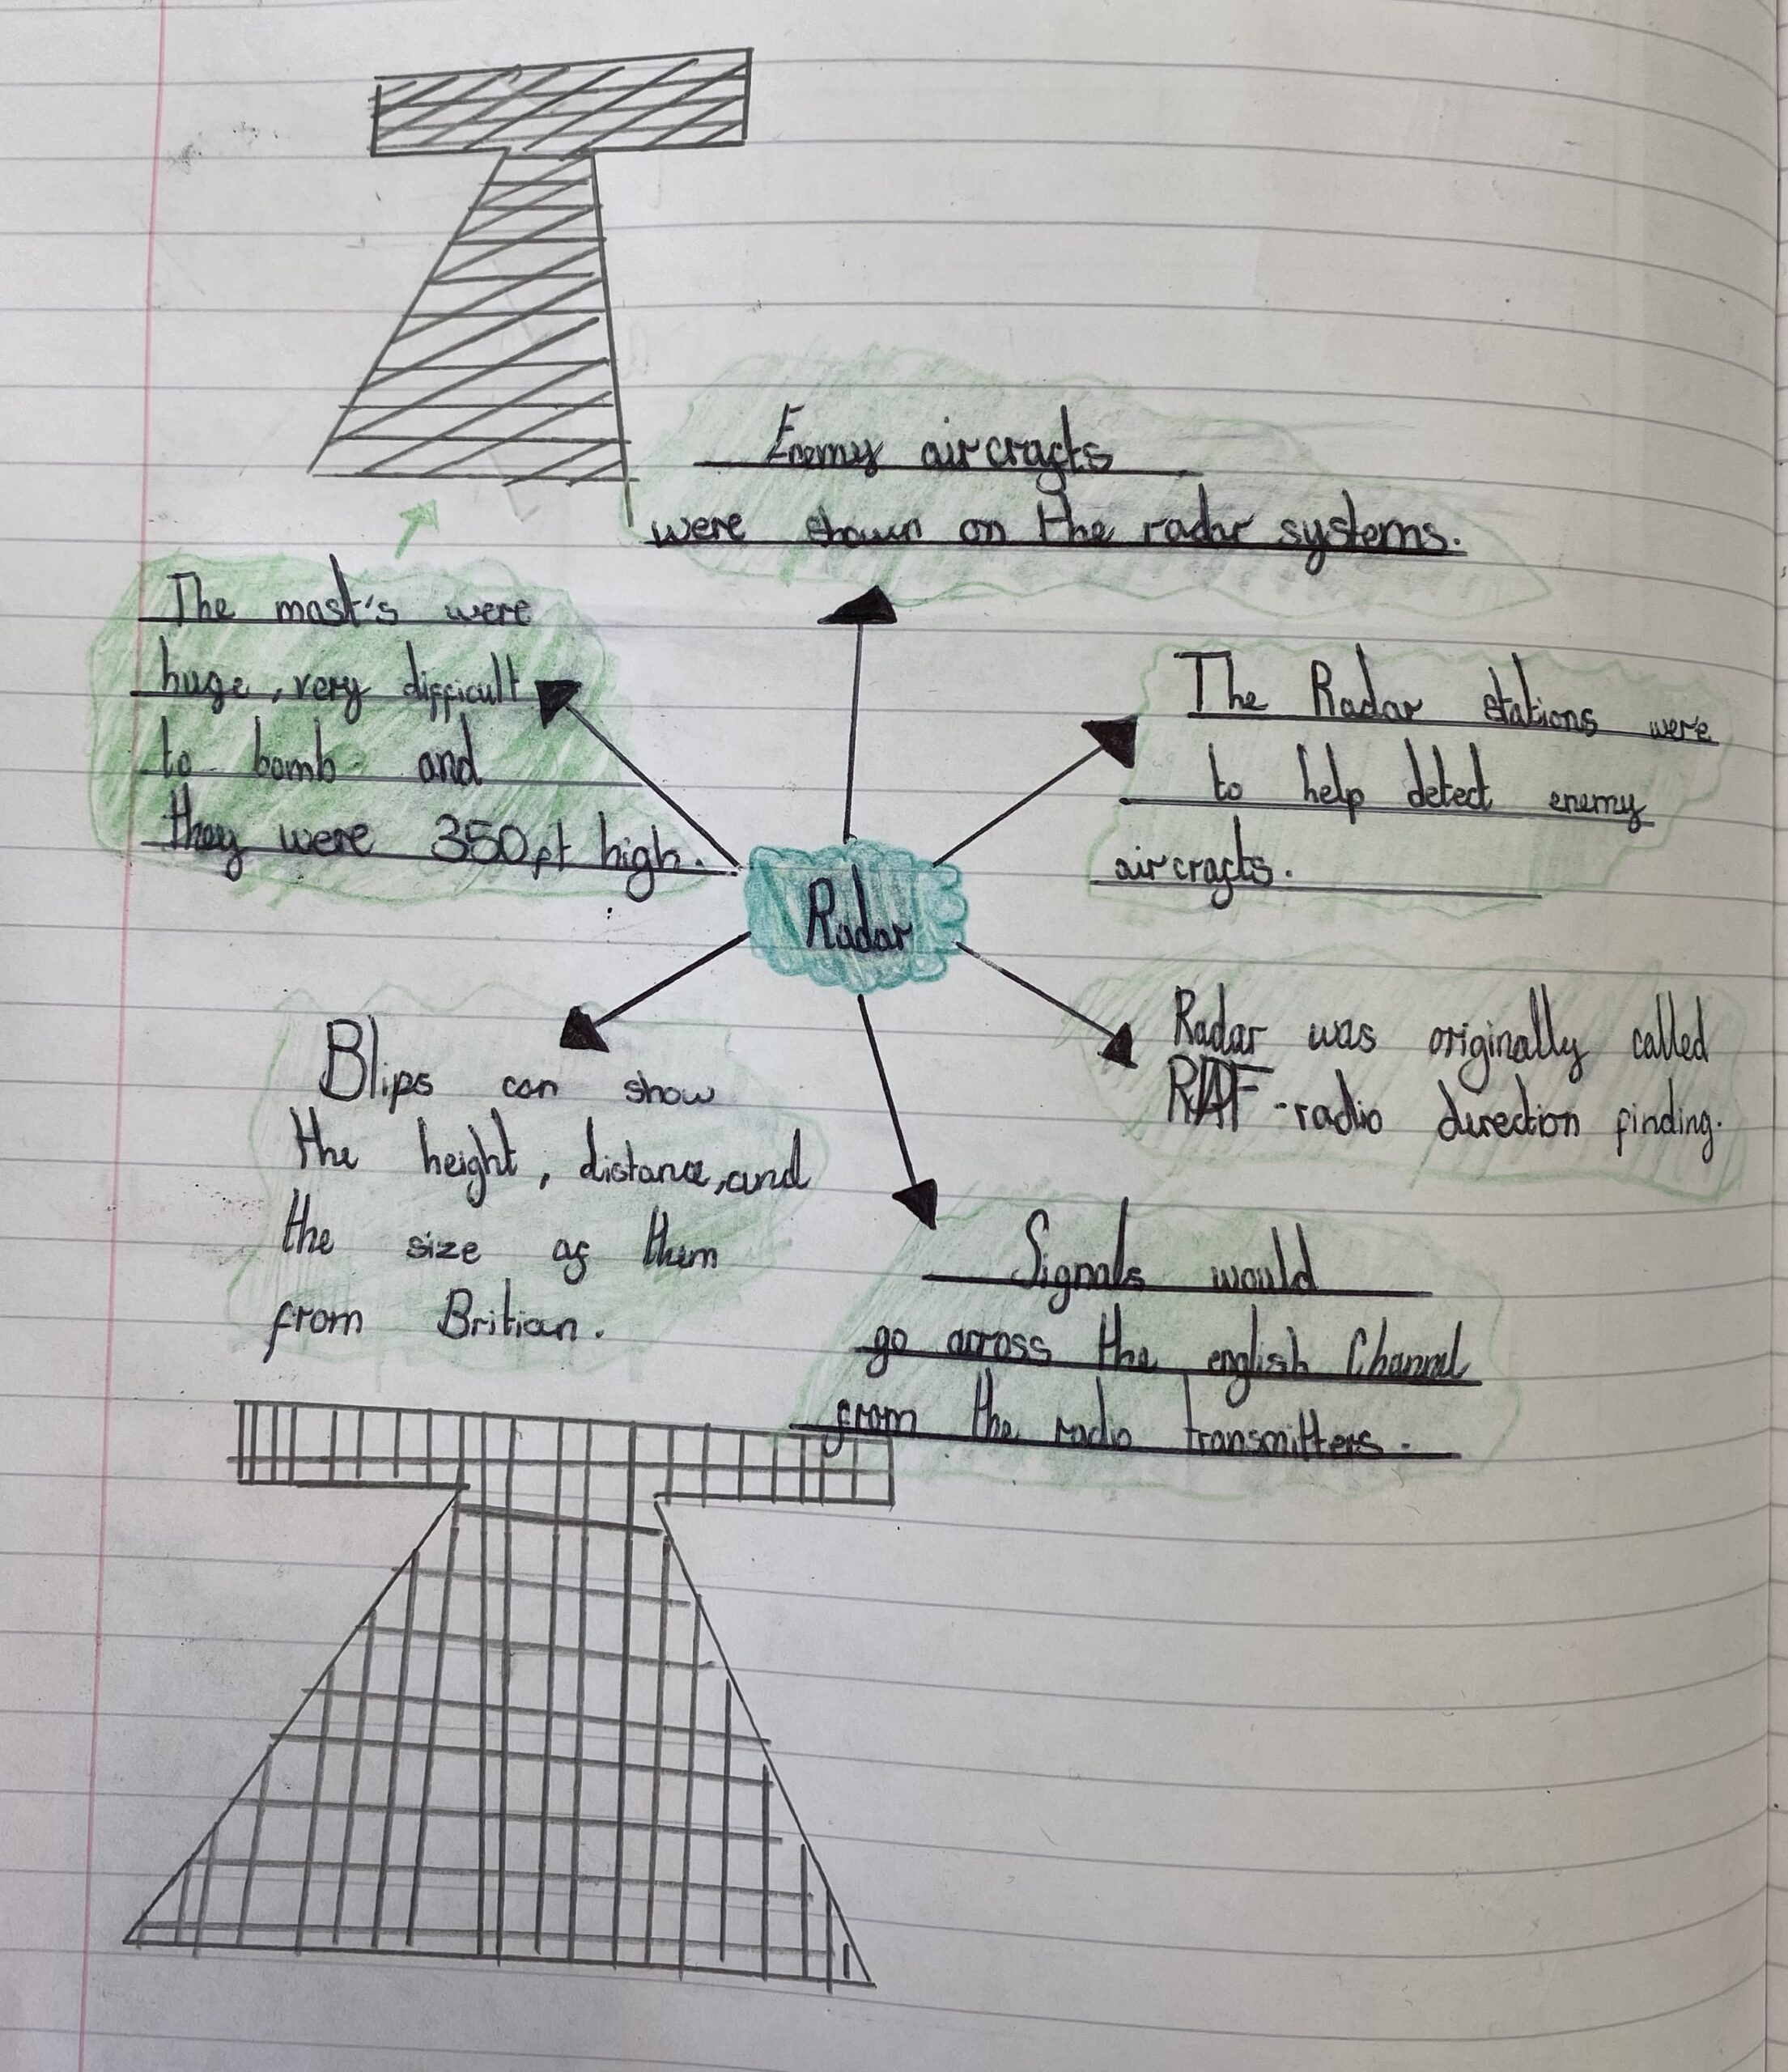 Enemy aircrafts
were shown on the radar systems.
The mast's were
huge, very difficult
to bomb and
they were 350ft high.
The Radar stations were
to help detect enemy
aircrafts.
Radar
Radar was originally called
-radio direction finding.
Blips can show
the height, distance, and
the size of them
from Britian.
Signals would
go across the english Channel
from the radio transmitters.